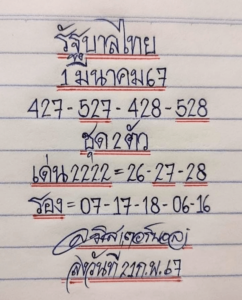 รัฐบาลไทย
1 มีนาคม 67
427-527-428-528
ชุด 2 ตัว
เด่น 2222 = 26-27-28
รอง = 07-17-18-06-16
ส่งวันที่ 21 ก.พ. 67